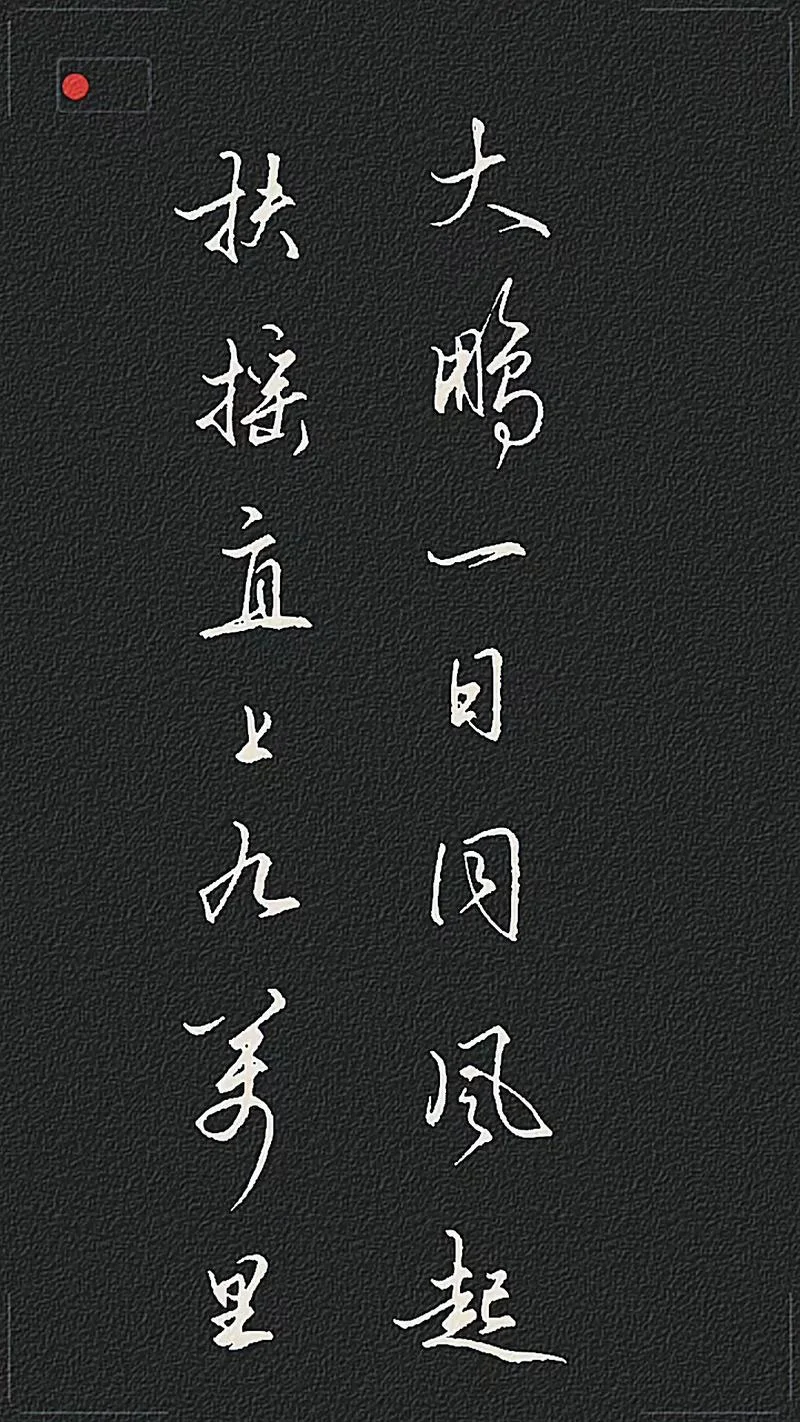 大鹏一日同风起
扶摇直上九萬里